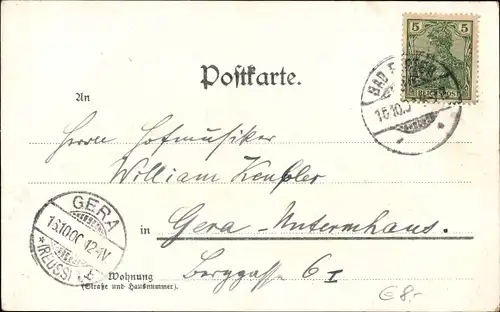 5 5
REICHSPOST
BAD
Postkarte.
15.10.0
An
Herrn Hofmusiker
William Keußler
GERA
16.10.00 12-1V
* (REUSS)
in Gera-Untermhaus.
Wohnung
(Straße und Hausnummer).
Berggasse 6 I
€8,-